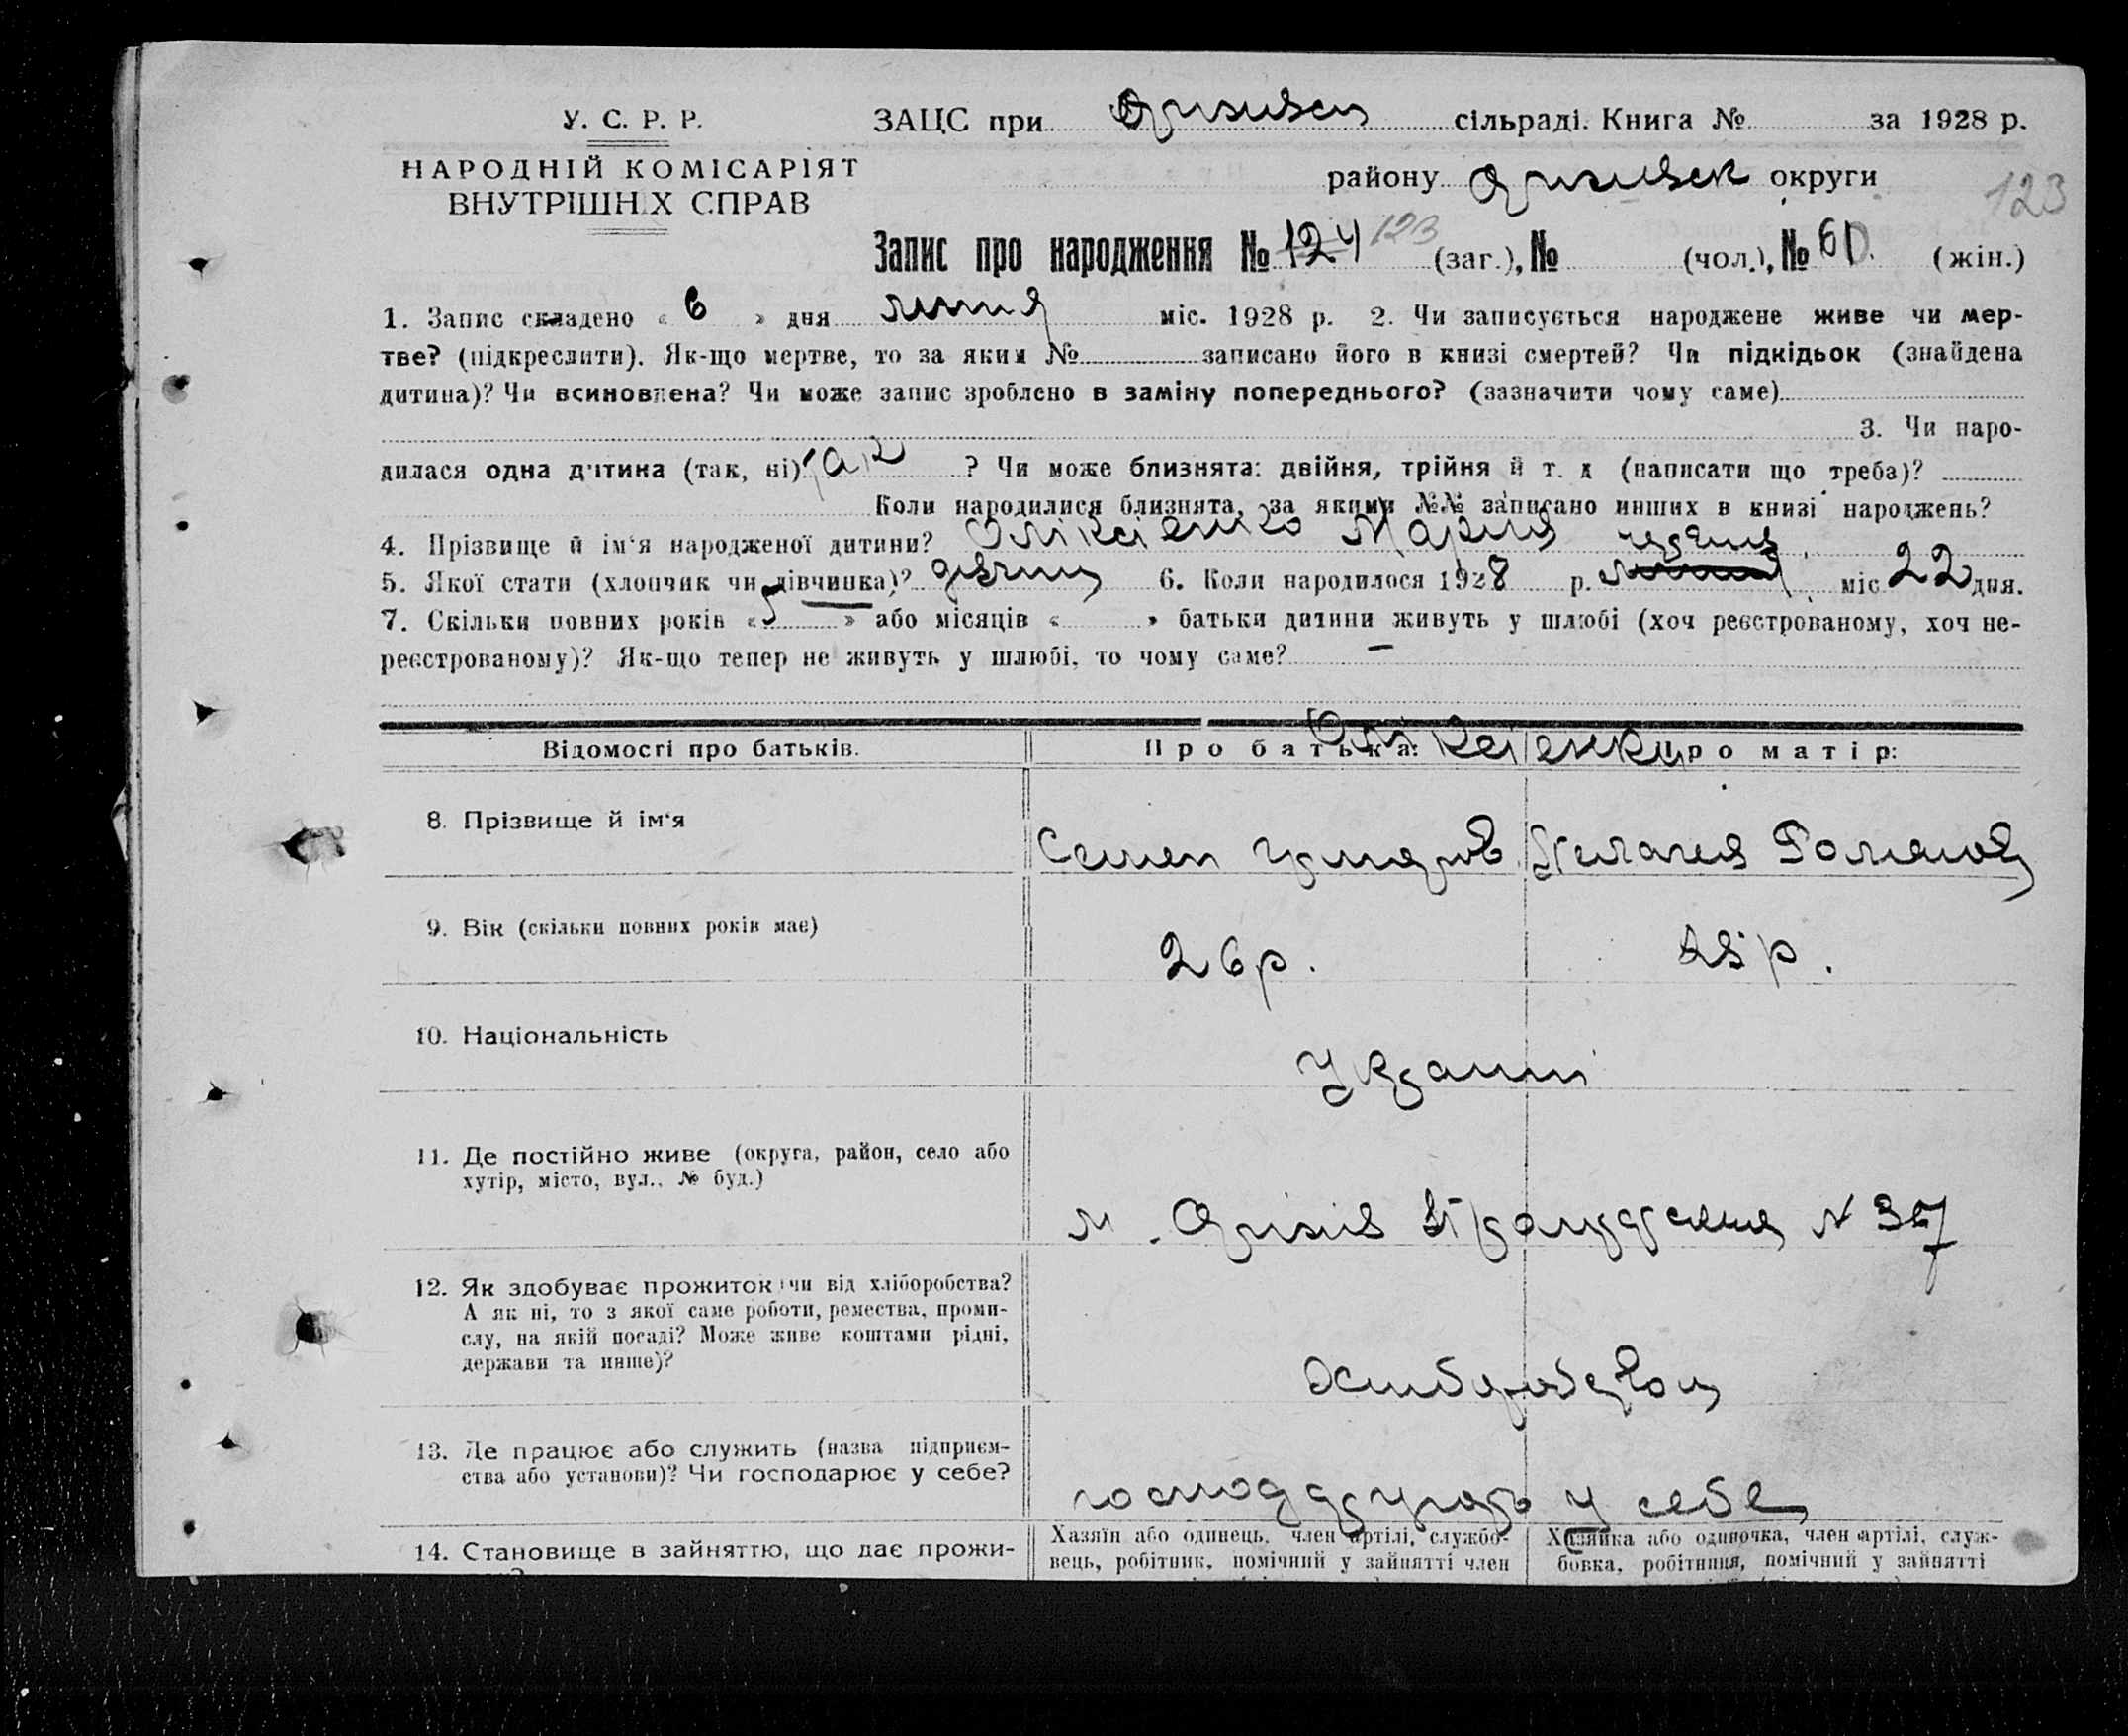 У. С. Р. Р.
НАРОДНІЙ КОМІСАРІЯТ
ВНУТРІШНІХ СПРАВ
ЗАЦС при сільраді. Книга № за 1928 р.
району округи
123
Запис про народження № 124 123 (заг.), № (чол.), № 60 (жін.)
1. Запис складено « 6 » дня липня міс. 1928 р. 2. Чи записується народжене живе чи мер-
тве? (підкреслити). Як-що мертве, то за яким № записано його в книзі смертей? Чи підкідьок (знайдена
дитина)? Чи всиновлена? Чи може запис зроблено в заміну попереднього? (зазначити чому саме)
3. Чи наро-
дилася одна дитина (так, ні) так ? Чи може близнята: двійня, трійня й т. д (написати що треба)?
Коли народилися близнята, за якими №№ записано инших в книзі народжень?
4. Прізвище й ім'я народженої дитини? Оліксієнко Мария
5. Якої статі (хлопчик чи дівчинка)? 6. Коли народилося 1928 р. червня міс 22 дня.
7. Скільки повних років « 5 » або місяців « » батьки дитини живуть у шлюбі (хоч реєстрованому, хоч не-
реєстрованому)? Як-що тепер не живуть у шлюбі, то чому саме? —
Відомості про батьків.
Про батька:
Про матір:
Оліксієнки
8. Прізвище й ім'я
Семен
Пелагея Романов
9. Вік (скільки повних років має)
26 р.
25 р.
10. Національність
Українці
11. Де постійно живе (округа, район, село або
хутір, місто, вул., № буд.)
м. Оріхів № 37
12. Як здобуває прожиток: чи від хліборобства?
А як ні, то з якої саме роботи, ремества, проми-
слу, на якій посаді? Може живе коштами рідні,
держави та инше)?
Хліборобство
13. Де працює або служить (назва підприєм-
ства або установи)? Чи господарює у себе?
господарують у себе
14. Становище в зайняттю, що дає прожи-
Хазяїн або одинець, член артілі, службо-
вець, робітник, помічний у зайнятті член
Хазяйка або одиночка, член артілі, служ-
бовка, робітниця, помічний у зайнятті